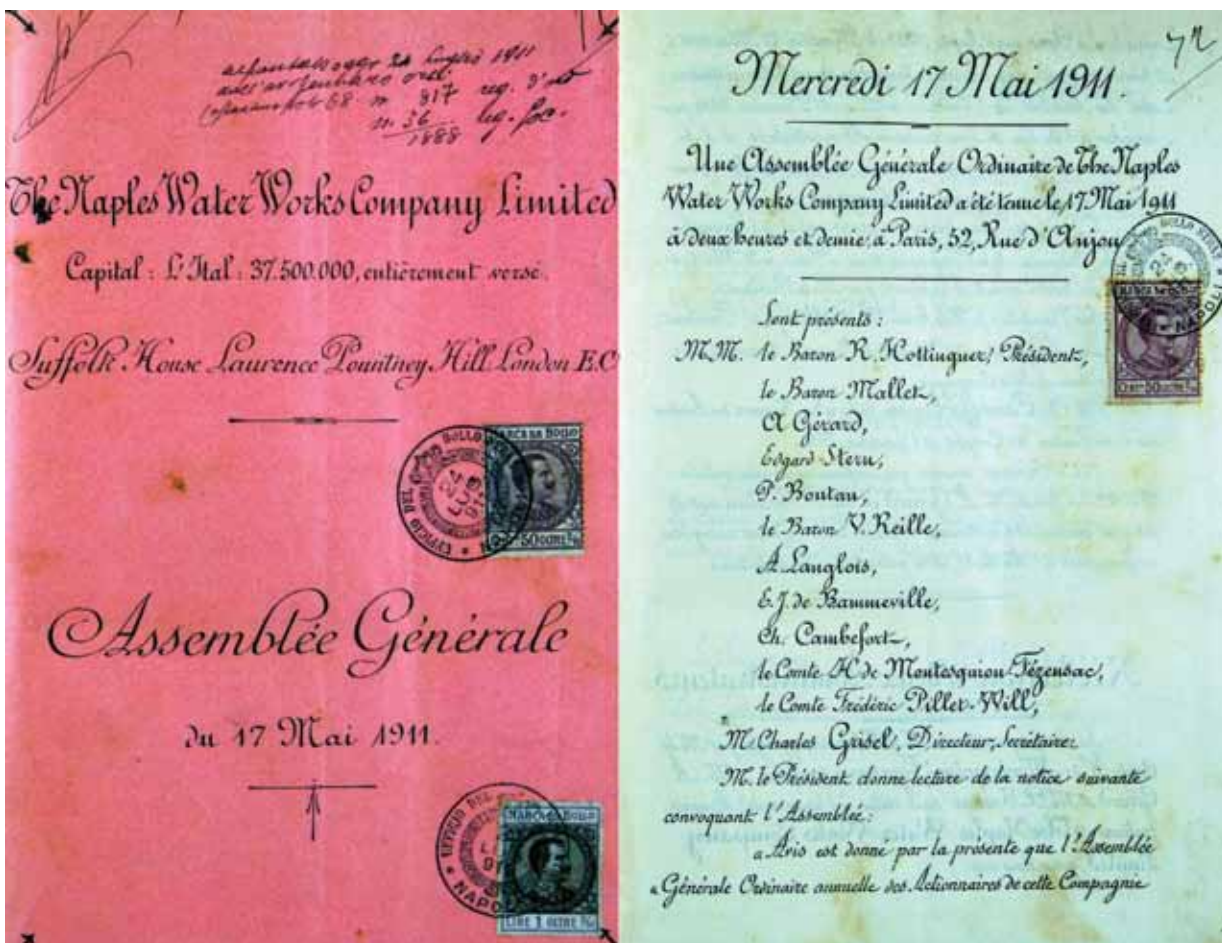 luglio 1911
n. 817 reg. d'
n. 36
1888
The Naples Water Works Company Limited
Capital : L. Ital : 37.500.000, entièrement versé.
Suffolk House Laurence Pountney Hill London E.C
MARCA DA BOLLO
UFFICIO DEL BOLLO
Assemblée Générale
du 17 Mai 1911.
MARCA DA BOLLO
UFFICIO DEL
NAPOLI
LIRE 1 OLTRE
Mercredi 17 Mai 1911.
Une Assemblée Générale Ordinaire de The Naples
Water Works Company Limited a été tenue le, 17 Mai 1911
à deux heures et demie, à Paris, 52, Rue d'Anjou
BOLLO
NAPOLI
MARCA DA BOLLO
Sont présents :
M.M. le Baron R. Hottinguer, Président,
le Baron Mallet,
A Gérard,
Edgard Stern,
P. Boutan,
le Baron V. Reille,
A. Langlois,
E. J. de Bammeville,
Ch. Cambefort,
le Comte H de Montesquiou-Fézensac,
le Comte Frédéric Pillet-Will,
M. Charles Grisel, Directeur-Secrétaire.
M. le Président donne lecture de la notice suivante
convoquant l'Assemblée :
« Avis est donné par la présente que l'Assemblée
« Générale Ordinaire annuelle des Actionnaires de cette Compagnie